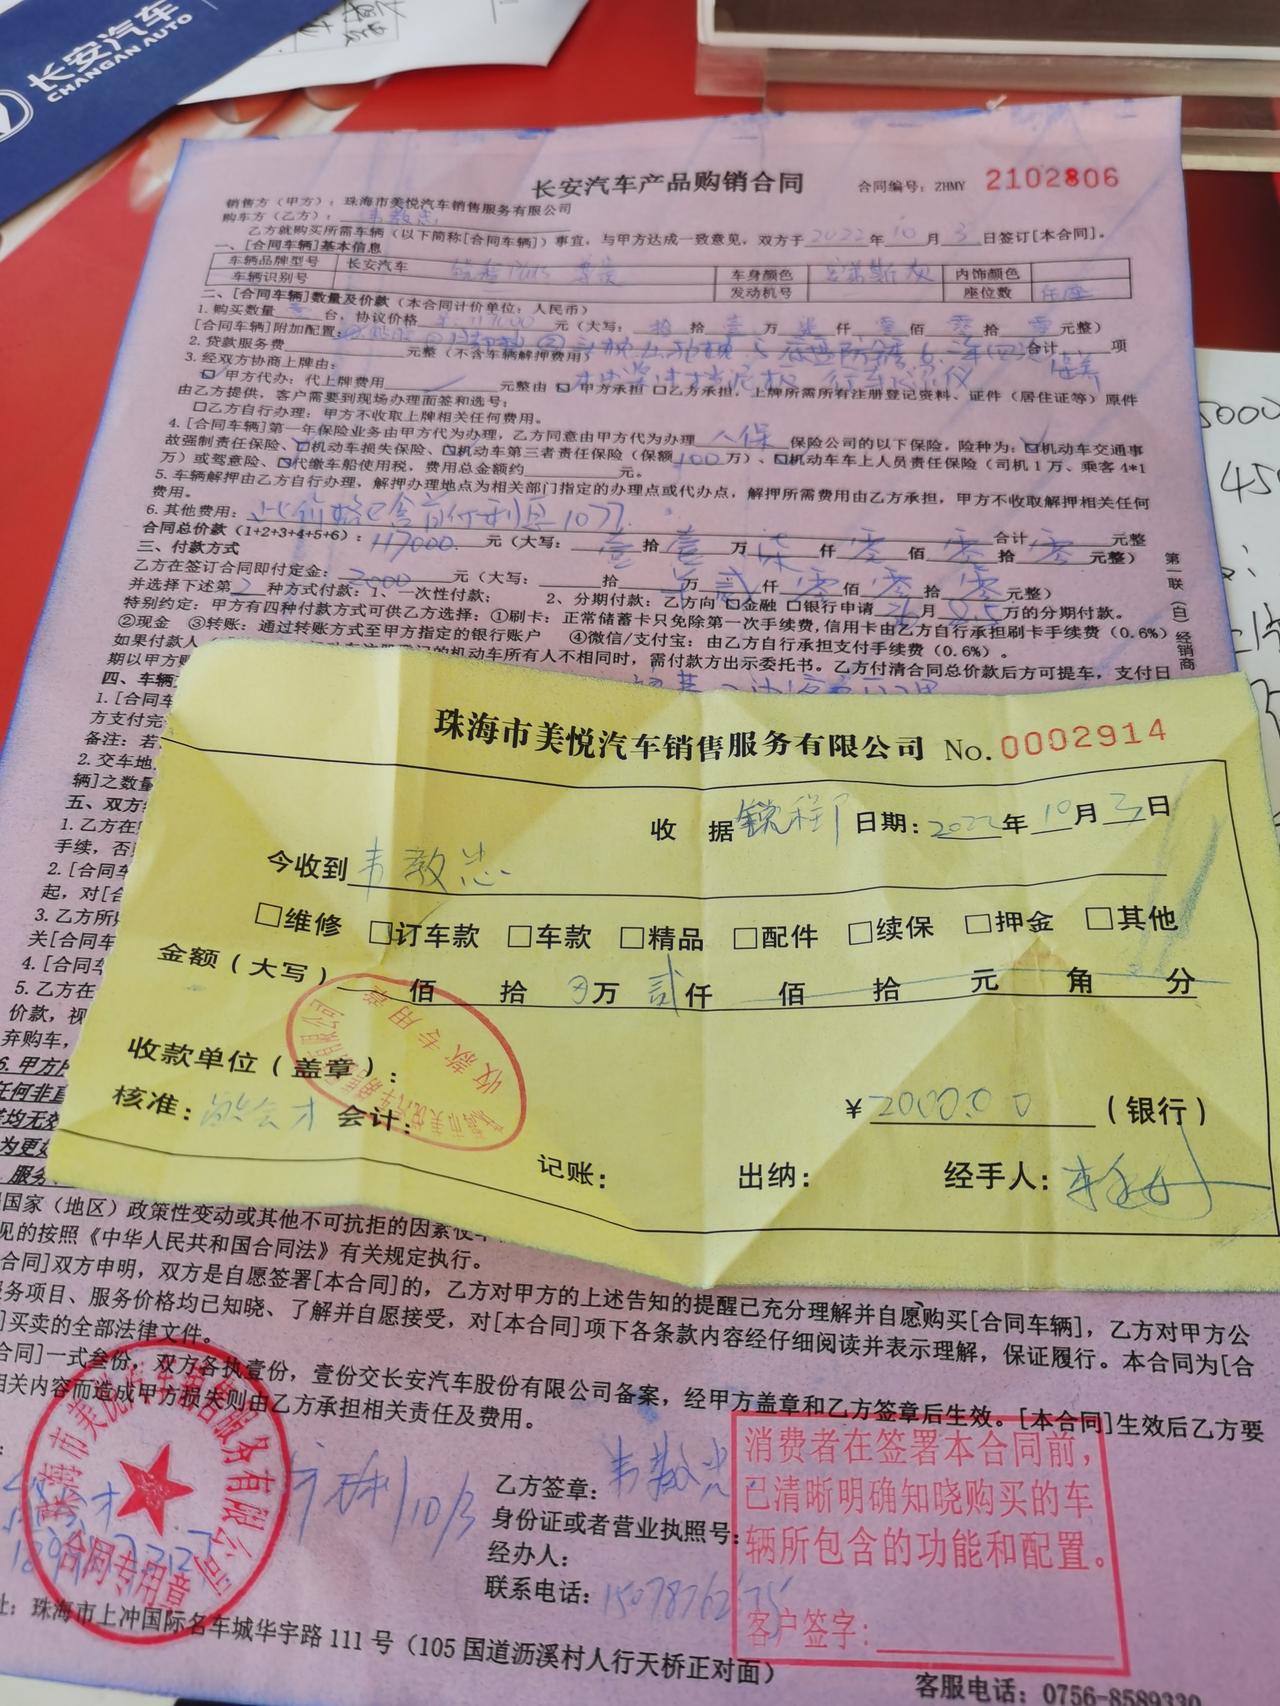 长安汽车
CHANGAN AUTO
长安汽车产品购销合同
合同编号：ZHMY 2102806
销售方（甲方）：珠海市美悦汽车销售服务有限公司
购车方（乙方）：韦教忠
乙方就购买所需车辆（以下简称[合同车辆]）事宜，与甲方达成一致意见，双方于2022年10月3日签订[本合同]。
一、[合同车辆]基本信息
车辆品牌型号 长安汽车 锐程 车身颜色 内饰颜色
车辆识别号 发动机号 座位数
二、[合同车辆]数量及价款（本合同计价单位：人民币）
1.购买数量 台，协议价格 117000 元（大写： 拾 壹 万 柒 仟 零 佰 零 拾 零 元整）
[合同车辆]附加配置： 合计 项
2.贷款服务费 元整（不含车辆解押费用）
3.经双方协商上牌由：
甲方代办：代上牌费用 元整由 甲方承担 乙方承担，上牌所需所有注册登记资料、证件（居住证等）原件
由乙方提供，客户需要到现场办理面签和选号；
□乙方自行办理：甲方不收取上牌相关任何费用。
4.[合同车辆]第一年保险业务由甲方代为办理，乙方同意由甲方代为办理 人保 保险公司的以下保险，险种为：机动车交通事
故强制责任保险、机动车损失保险、机动车第三者责任保险（保额100万）、机动车车上人员责任保险（司机1万、乘客4*1
万）或驾意险、代缴车船使用税，费用总金额约 元。
5.车辆解押由乙方自行办理，解押办理地点为相关部门指定的办理点或代办点，解押所需费用由乙方承担，甲方不收取解押相关任何
费用。
6.其他费用：此价格已含首付利息 合计 元整
合同总价款（1+2+3+4+5+6）：117000 元（大写： 壹 拾 壹 万 柒 仟 零 佰 零 拾 零 元整）
三、付款方式
乙方在签订合同即付定金：2000 元（大写： 拾 万 贰 仟 零 佰 零 拾 零 元整）
并选择下述第2种方式付款：1、一次性付款； 2、分期付款：乙方向 金融 □银行申请 月 万的分期付款。
特别约定：甲方有四种付款方式可供乙方选择：①刷卡：正常储蓄卡只免除第一次手续费,信用卡由乙方自行承担刷卡手续费（0.6%）
②现金 ③转账：通过转账方式至甲方指定的银行账户 ④微信/支付宝：由乙方自行承担支付手续费（0.6%）。
如果付款人 的机动车所有人不相同时，需付款方出示委托书。乙方付清合同总价款后方可提车，支付日
期以甲方
四、车辆
1.[合同车
方支付完
备注：若
2.交车地
辆]之数量
五、双方
1.乙方在
手续，否
2.[合同车
起，对[合
3.乙方所
关[合同车
4.[合同车
5.乙方在
价款，视
弃购车，
6.甲方
任何非直
均无效
为更
服务
第一联（白）经销商
珠海市美悦汽车销售服务有限公司 No.0002914
收 据 锐程 日期：2022年10月3日
今收到 韦教忠
□维修 订车款 □车款 □精品 □配件 □续保 □押金 □其他
金额（大写） 佰 拾 万 贰仟 佰 拾 元 角 分
收款单位（盖章）：
珠海市美悦汽车销售服务有限公司
收款专用章
￥2000.00（银行）
核准： 会计：
记账： 出纳： 经手人：
国家（地区）政策性变动或其他不可抗拒的因素使
见的按照《中华人民共和国合同法》有关规定执行。
合同]双方申明，双方是自愿签署[本合同]的，乙方对甲方的上述告知的提醒已充分理解并自愿购买[合同车辆]，乙方对甲方公
务项目、服务价格均已知晓、了解并自愿接受，对[本合同]项下各条款内容经仔细阅读并表示理解，保证履行。本合同为[合
]买卖的全部法律文件。
合同]一式叁份，双方各执壹份，壹份交长安汽车股份有限公司备案，经甲方盖章和乙方签章后生效。[本合同]生效后乙方要
相关内容而造成甲方损失则由乙方承担相关责任及费用。
珠海市美悦汽车销售服务有限公司
合同专用章
10/3
乙方签章：韦教忠
身份证或者营业执照号：
经办人：
联系电话：
消费者在签署本合同前，
已清晰明确知晓购买的车
辆所包含的功能和配置。
客户签字：
址：珠海市上冲国际名车城华宇路111号（105国道沥溪村人行天桥正对面）
客服电话：0756-8589330